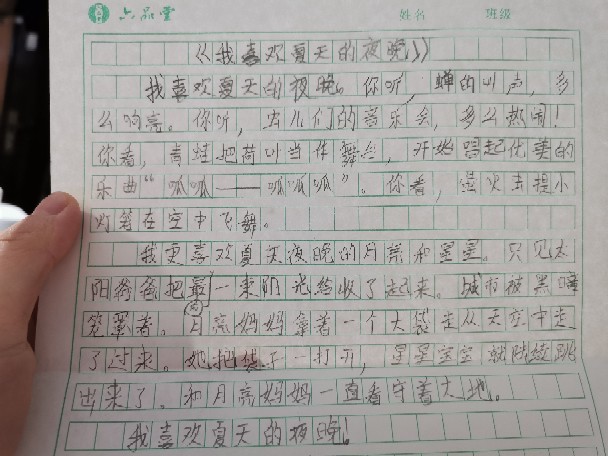 六品堂 姓名 班级
《我喜欢夏天的夜晚》
我喜欢夏天的夜晚。你听,蝉的叫声,多
么响亮。你听,虫儿们的音乐会,多么热闹!
你看,青蛙把荷叶当作舞台,开始唱起优美的
乐曲“呱呱——呱呱呱”。你看,萤火虫提小
灯笼在空中飞舞。
我更喜欢夏天夜晚的月亮和星星。只见太
阳爷爷把最后一束阳光给收了起来。城市被黑暗
笼罩着。月亮妈妈拿着一个大袋走从天空中走
了过来。她把袋子一打开,星星宝宝就陆续跳
出来了。和月亮妈妈一直看守着大地。
我喜欢夏天的夜晚!